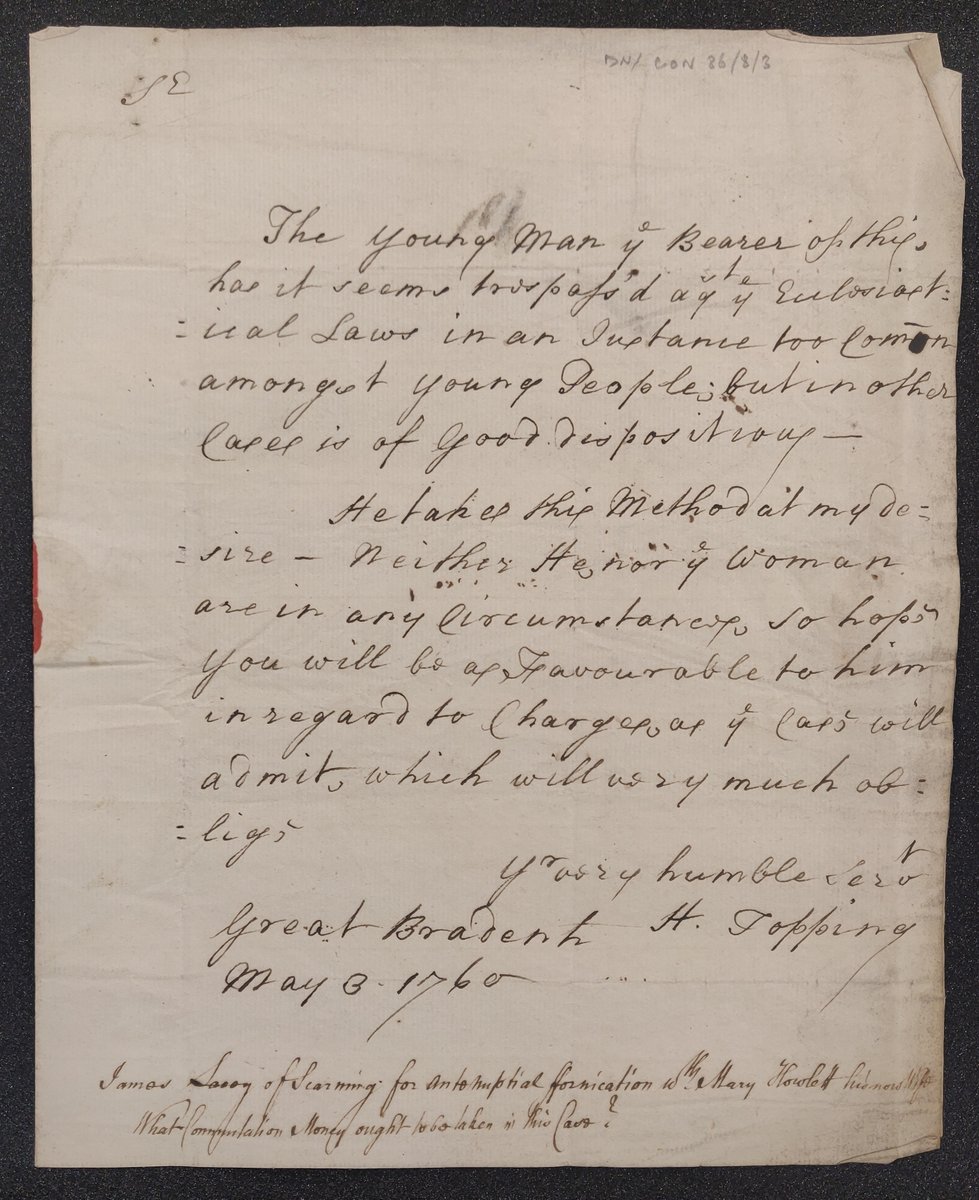 DN/ CON 86/8/3
Sr
The Young Man ye Bearer of this,
has it seems trespass'd agst ye Ecclesiast:
=ical Laws in an Instance too Com̄on
amongst Young People; but in other
Cases is of Good dispositions —
He takes this Method at my de=
=sire — Neither He, nor ye Woman
are in any Circumstances, so hope
You will be as Favourable to him
in regard to Charges, as ye Case will
admit, which will very much ob=
=lige
Yr very humble Servt
Great Bradenh H. Topping
May 3. 1760
James Lacey of Scarning for Antenuptial fornication wth Mary Howlett his now Wife
What Commutation Money ought to be taken in this Case?